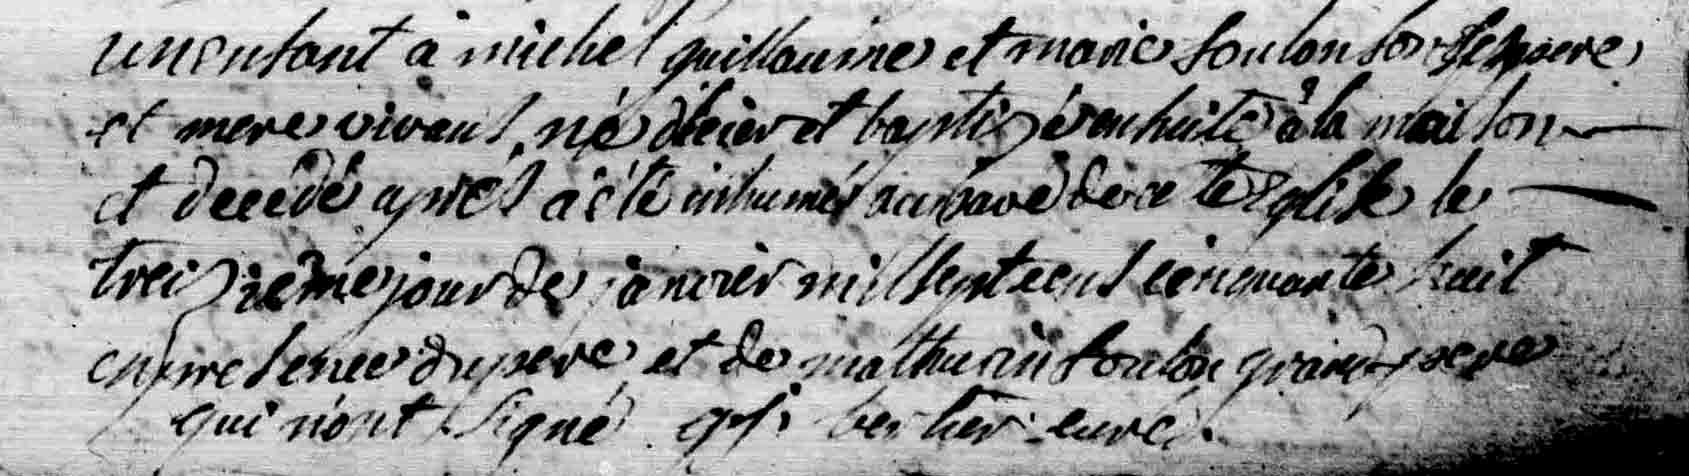 un enfant à michel guillaume et marie soulon ses pere
et mere vivans, né d'hier et baptizé ensuite à la maison
et decedé après à été inhumé au bavé de cete Eglise le
treizième jour de janvier mil sept cens cinquante huit
en presence du pere et de mathurin soulon grand pere
qui n'ont signé berthier curé.